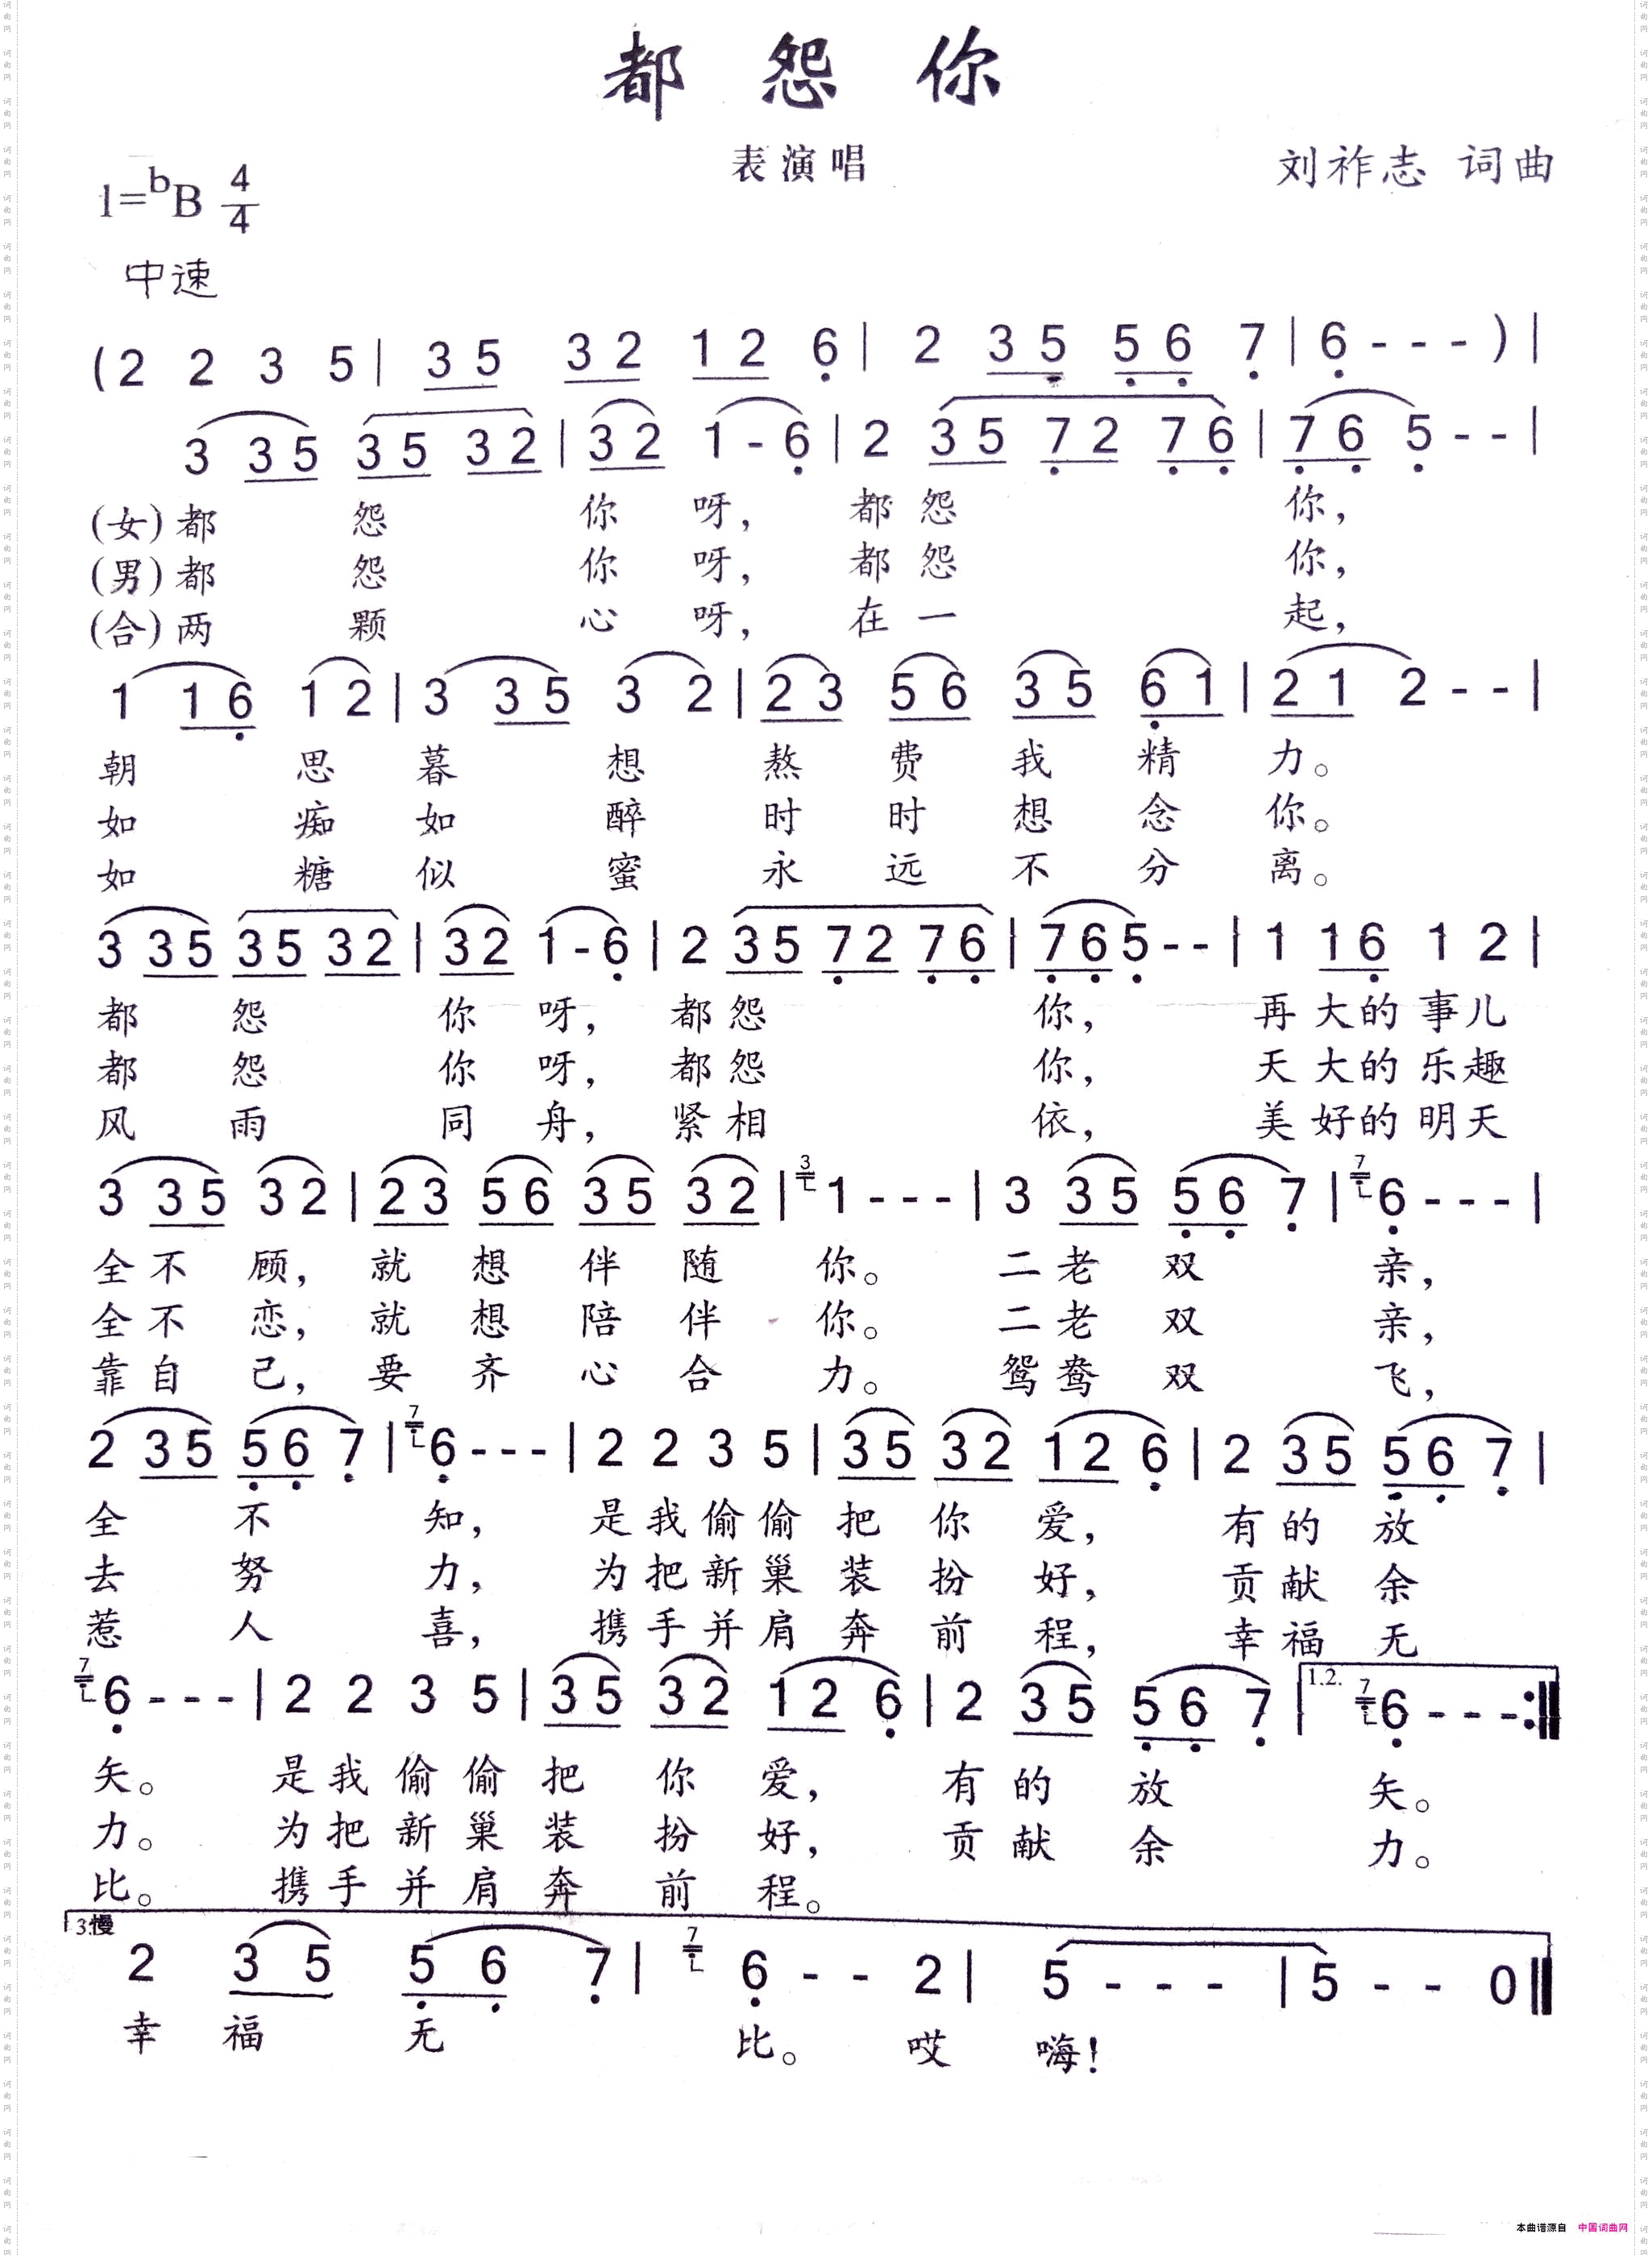 都怨你
表演唱
刘祚志 词曲
1=bB 4/4
中速
(2 2 3 5 | 3 5 3 2 1 2 6 | 2 3 5 5 6 7 | 6 - - - ) |
3 3 5 3 5 3 2 | 3 2 1 - 6 | 2 3 5 7 2 7 6 | 7 6 5 - - |
(女)都 怨 你 呀, 都 怨 你,
(男)都 怨 你 呀, 都 怨 你,
(合)两 颗 心 呀, 在 一 起,
1 1 6 1 2 | 3 3 5 3 2 | 2 3 5 6 3 5 6 1 | 2 1 2 - - |
朝 思 暮 想 熬 费 我 精 力。
如 痴 如 醉 时 时 想 念 你。
如 糖 似 蜜 永 远 不 分 离。
3 3 5 3 5 3 2 | 3 2 1 - 6 | 2 3 5 7 2 7 6 | 7 6 5 - - | 1 1 6 1 2 |
都 怨 你 呀, 都 怨 你, 再 大 的 事 儿
都 怨 你 呀, 都 怨 你, 天 大 的 乐 趣
风 雨 同 舟, 紧 相 依, 美 好 的 明 天
3 3 5 3 2 | 2 3 5 6 3 5 3 2 | 3 1 - - - | 3 3 5 5 6 7 | 7 6 - - - |
全 不 顾, 就 想 伴 随 你。 二 老 双 亲,
全 不 恋, 就 想 陪 伴 你。 二 老 双 亲,
靠 自 己, 要 齐 心 合 力。 鸳 鸯 双 飞,
2 3 5 5 6 7 | 7 6 - - - | 2 2 3 5 | 3 5 3 2 1 2 6 | 2 3 5 5 6 7 |
全 不 知, 是 我 偷 偷 把 你 爱, 有 的 放
去 努 力, 为 把 新 巢 装 扮 好, 贡 献 余
惹 人 喜, 携 手 并 肩 奔 前 程, 幸 福 无
7 6 - - - | 2 2 3 5 | 3 5 3 2 1 2 6 | 2 3 5 5 6 7 | 1.2. 7 6 - - - :‖
矢。 是 我 偷 偷 把 你 爱, 有 的 放 矢。
力。 为 把 新 巢 装 扮 好, 贡 献 余 力。
比。 携 手 并 肩 奔 前 程。
3.慢
2 3 5 5 6 7 | 7 6 - - 2 | 5 - - - | 5 - - 0 ‖
幸 福 无 比。 哎 嗨!
本曲谱源自 中国词曲网